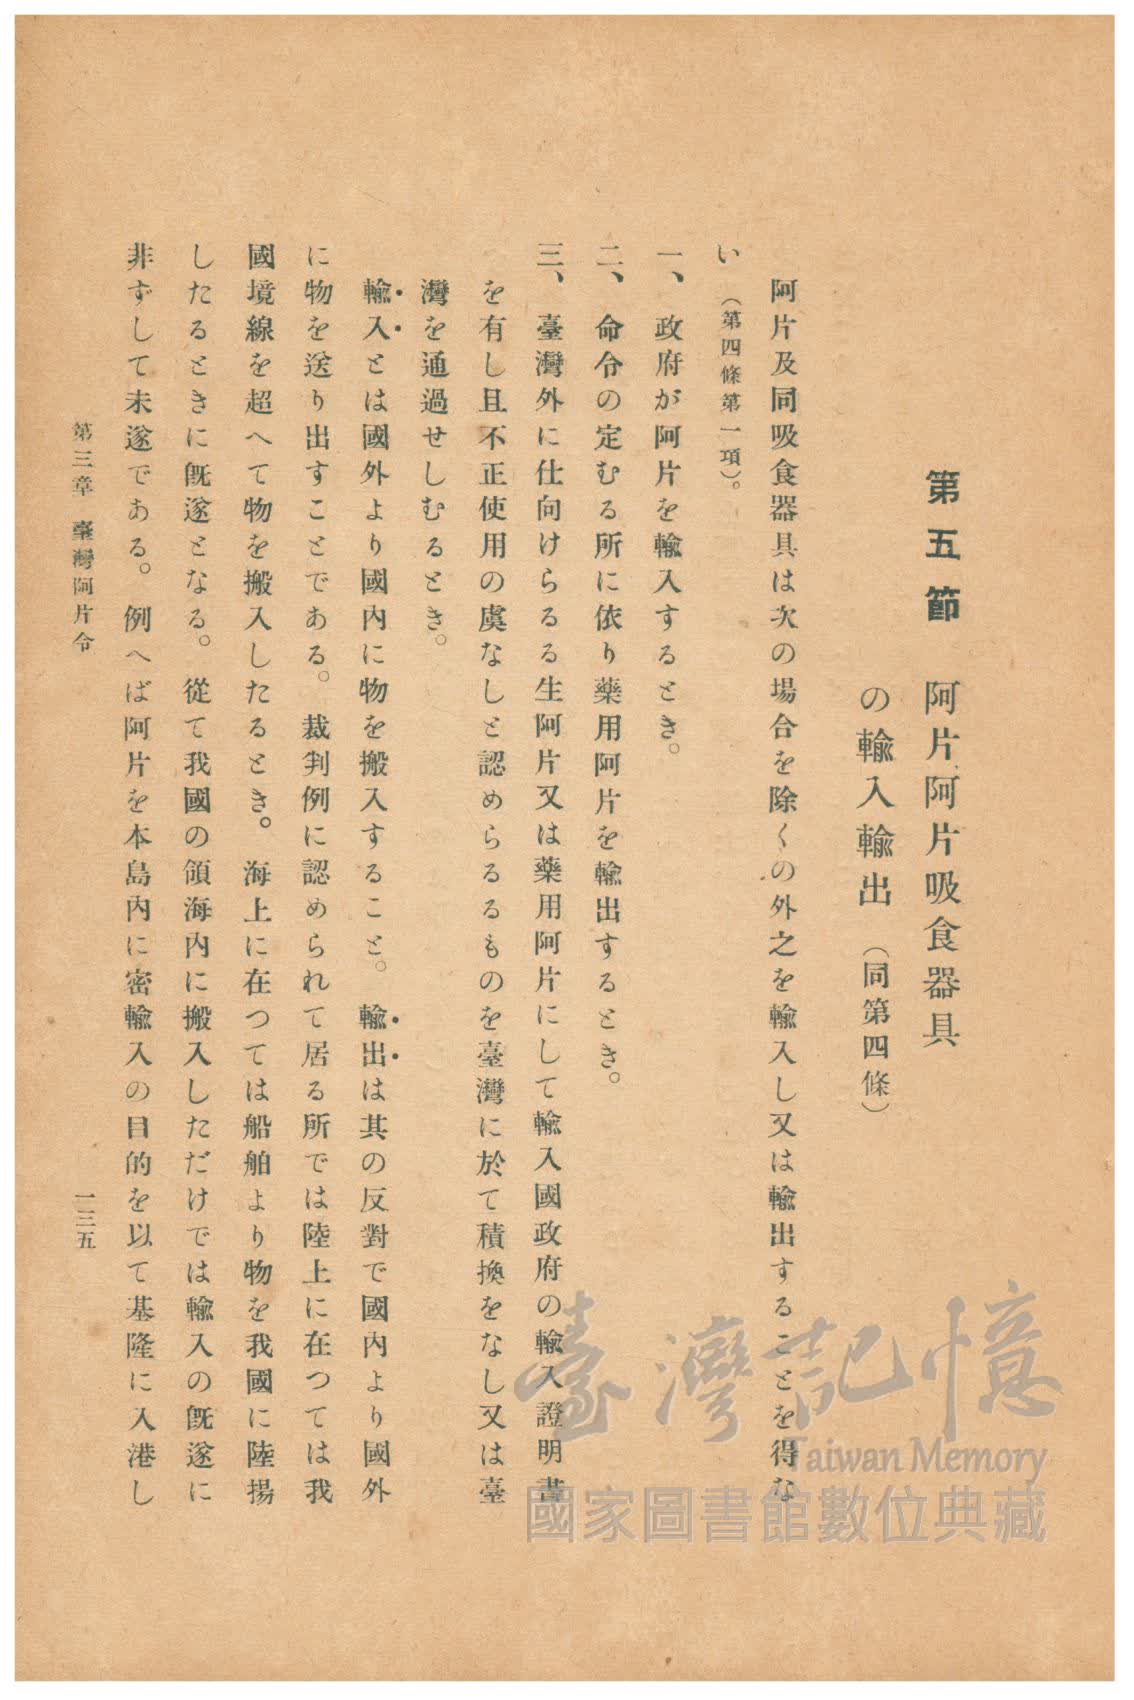 第五節 阿片、阿片吸食器具
の輸入輸出（同第四條）
阿片及同吸食器具は次の場合を除くの外之を輸入し又は輸出することを得な
い（第四條第一項）。
一、政府が阿片を輸入するとき。
二、命令の定むる所に依り藥用阿片を輸出するとき。
三、臺灣外に仕向けらるる生阿片又は藥用阿片にして輸入國政府の輸入證明書
を有し且不正使用の虞なしと認めらるるものを臺灣に於て積換をなし又は臺
灣を通過せしむるとき。
輸入とは國外より國內に物を搬入すること。輸出は其の反對で國內より國外
に物を送り出すことである。裁判例に認められて居る所では陸上に在つては我
國境線を超へて物を搬入したるとき。海上に在つては船舶より物を我國に陸揚
したるときに旣遂となる。從て我國の領海內に搬入しただけでは輸入の旣遂に
非ずして未遂である。例へば阿片を本島內に密輸入の目的を以て基隆に入港し
第三章 臺灣阿片令
一三五
臺灣記憶
Taiwan Memory
國家圖書館數位典藏